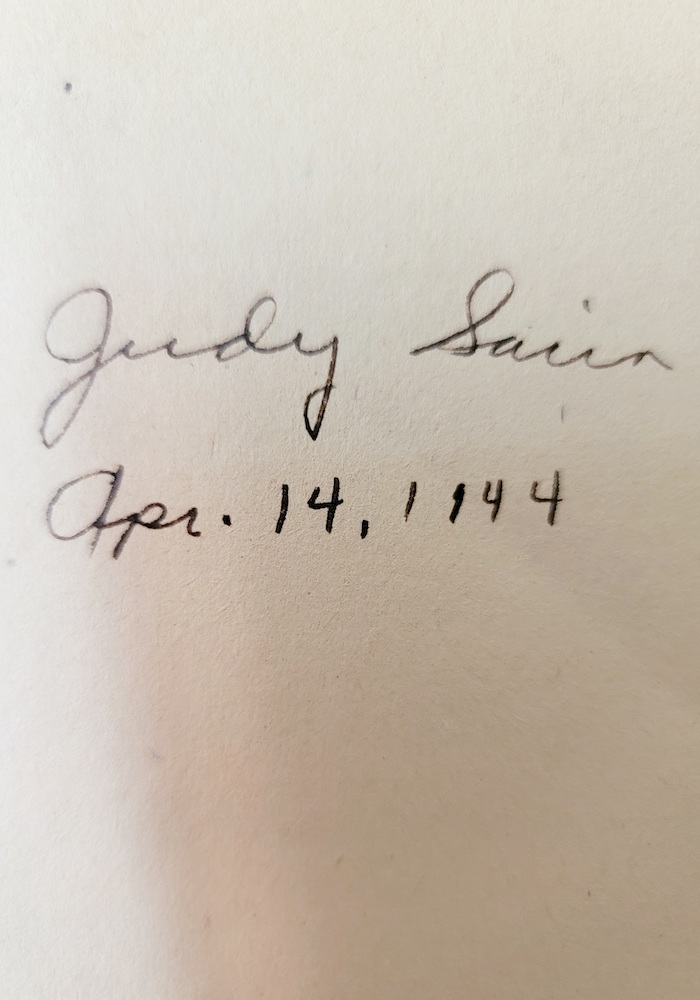 Judy Sain
Apr. 14, 1944